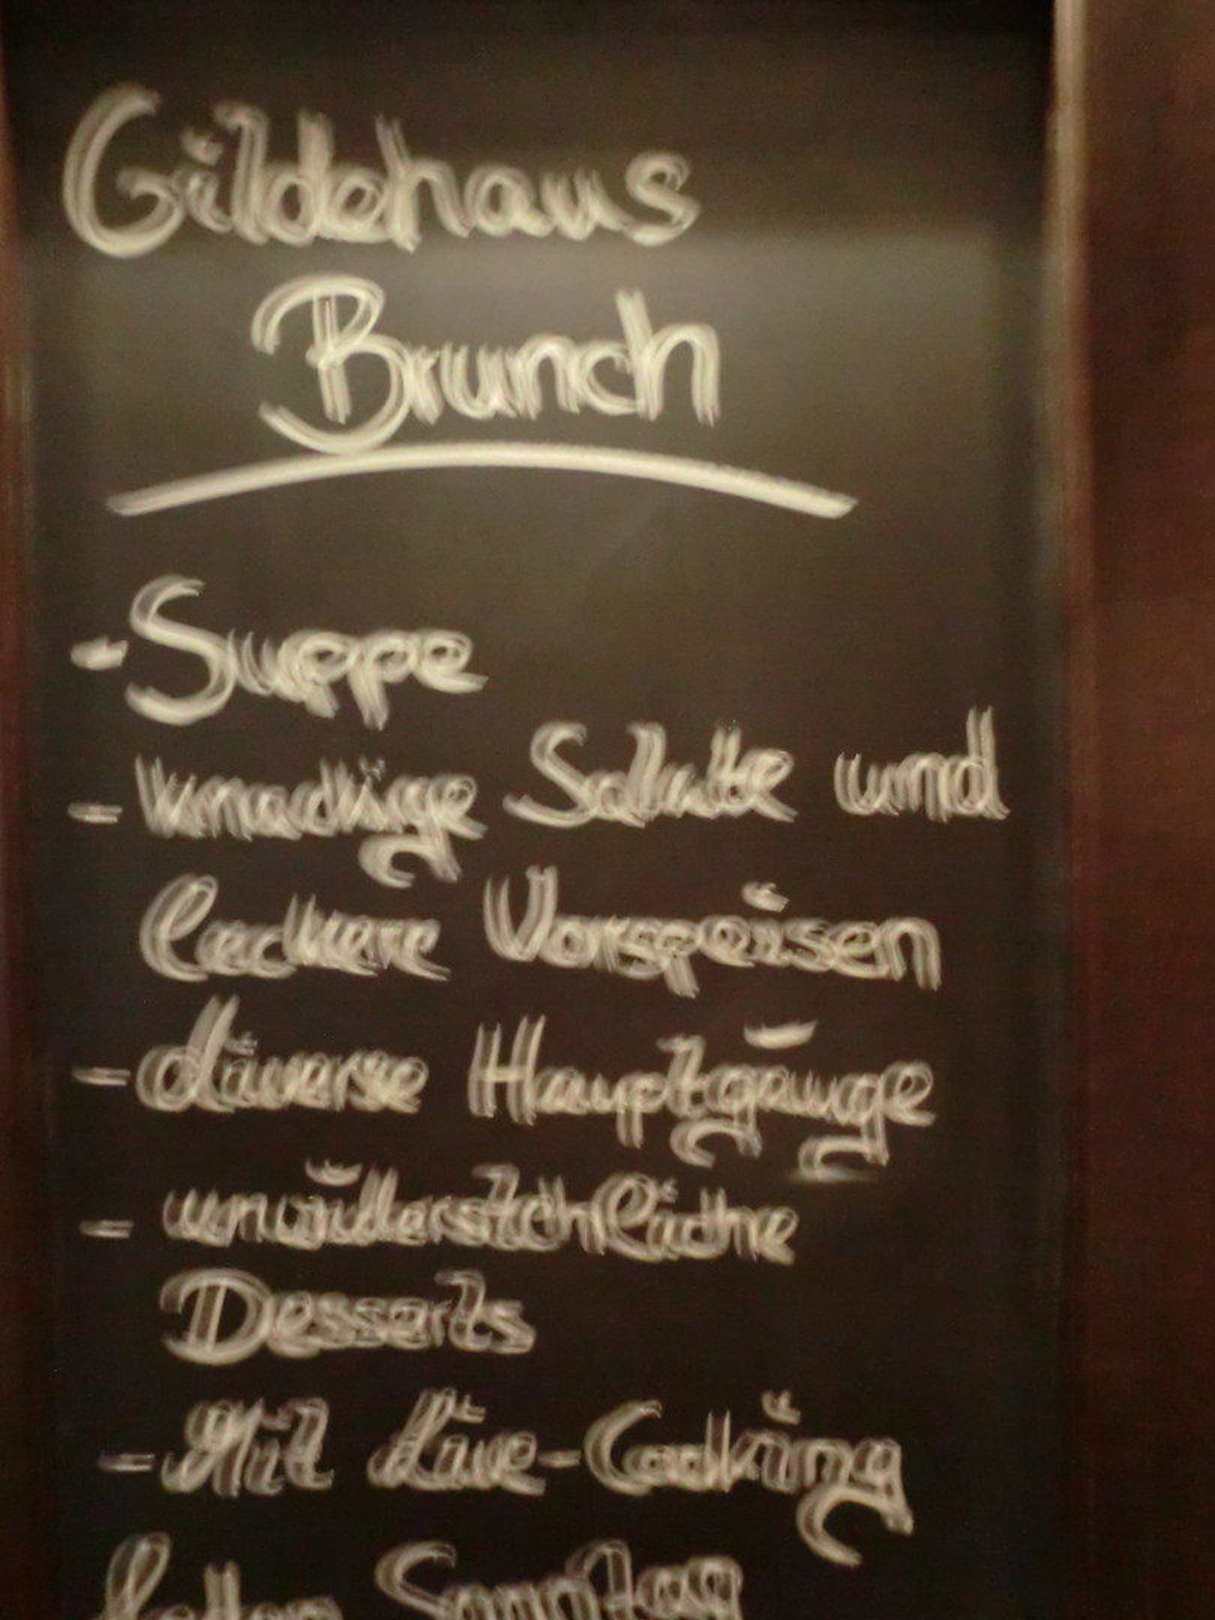 Gildehaus
Brunch
- Suppe
- knackige Salate und
leckere Vorspeisen
- diverse Hauptgänge
- unwiderstehliche
Desserts
- Mit Live-Cooking
Sonntag